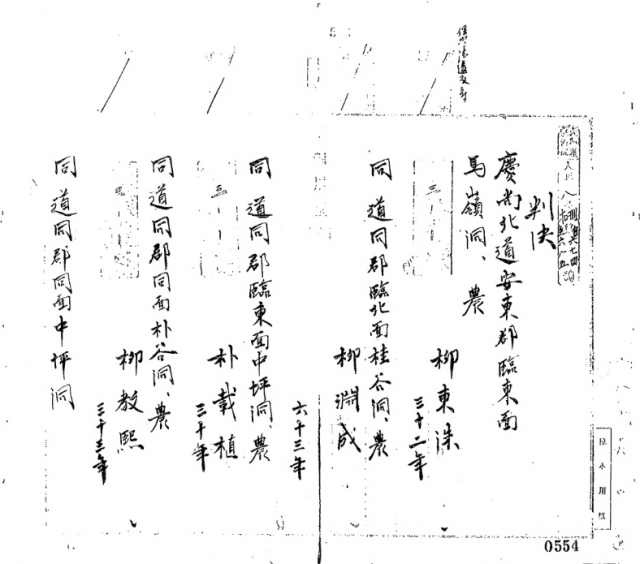 判決
慶尚北道安東郡臨東面
馬嶺洞、農
柳東洙
三十二年
同道同郡臨北面桂谷洞、農
柳淵成
六十三年
同道同郡臨東面中坪洞、農
朴載植
三十年
同道同郡同面朴谷洞、農
柳教熙
三十三年
同道同郡同面中坪洞
0554